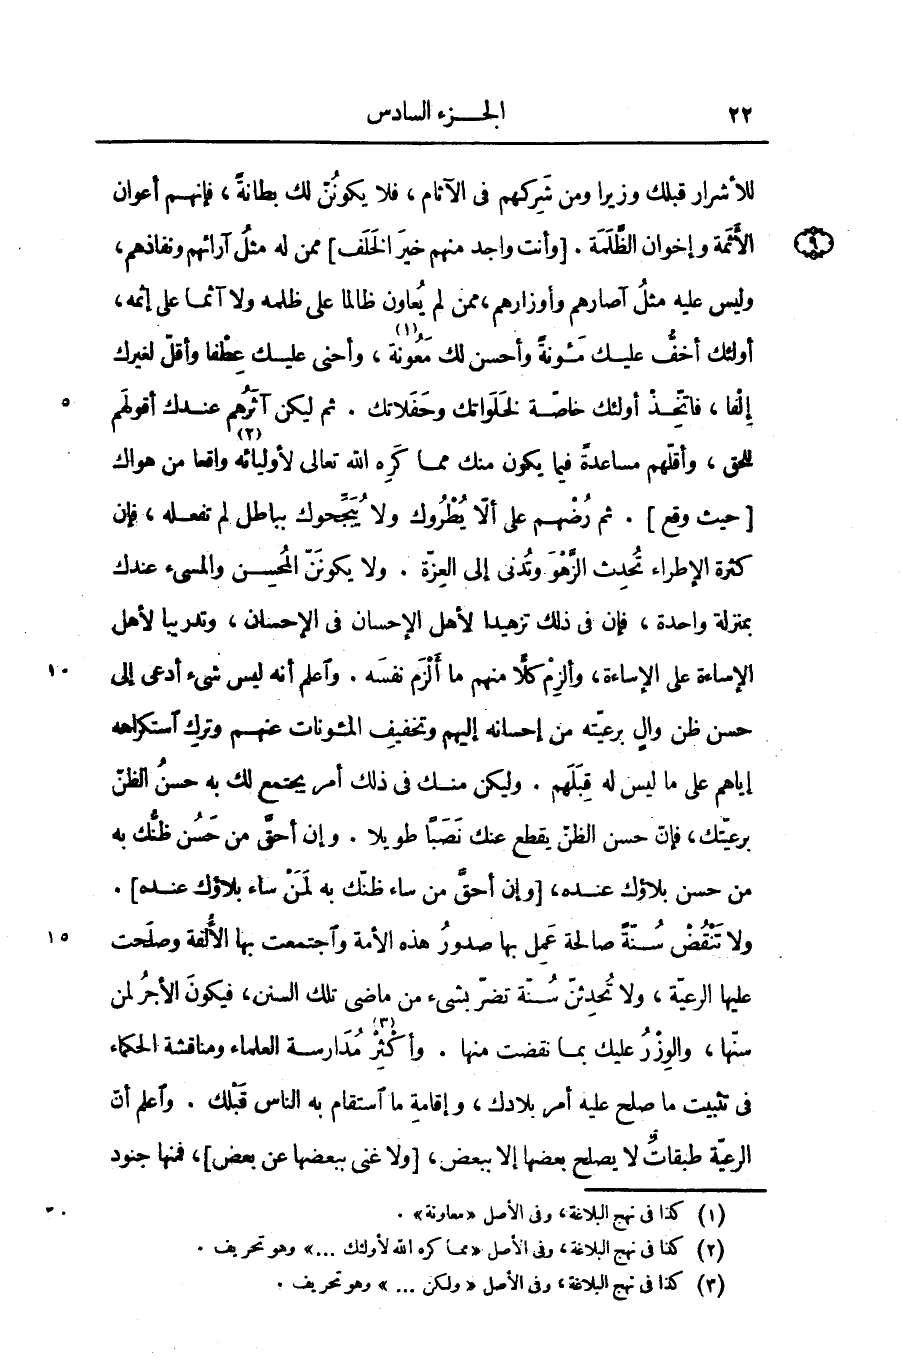 ٢٢ الجزء السادس
للأشرار قبلك وزيرا ومن شَرِكهم فى الآثام ، فلا يكونُنّ لك بطانةً ، فإنهم أعوان
٩
الأَثَمة وإخوان الظَّلَمَة . [وأنت واجد منهم خيرَ الخَلَف] ممن له مثلُ آرائهم ونفاذهم ،
وليس عليه مثلُ آصارهم وأوزارهم ، ممن لم يُعاون ظالما على ظلمه ولا آثما على إثمه ،
أولئك أخفُّ عليك مَئونةً وأحسن لك مَعُونة (١) ، وأحنى عليك عِطْفا وأقلّ لغيرك
إِلْفا ، فاتّخِذْ أولئك خاصّة لخَلَواتك وحَفَلاتك . ثم ليكن آثَرُهم عندك أقولَهم ٥
للحق ، وأقلّهم مساعدةً فيما يكون منك مما كَرِه الله تعالى لأوليائه (٢) واقعا من هواك
[حيث وقع] . ثم رُضْهم على ألّا يُطْرُوك ولا يُبَجِّحوك بباطل لم تفعله ، فإن
كثرة الإطراء تُحدِث الزَّهْوَ وتُدنى إلى العزّة . ولا يكونَنّ المُحسِن والمسىء عندك
بمنزلة واحدة ، فإن فى ذلك تزهيدا لأهل الإحسان فى الإحسان ، وتدريبا لأهل
الإساءة على الإساءة ، وألزِمْ كلًّا منهم ما أَلْزَم نفسَه . وآعلم أنه ليس شىء أدعى إلى ١٠
حسن ظن والٍ برعيّته من إحسانه إليهم وتخفيفِ المئونات عنهم وتركِ آستكراهه
إياهم على ما ليس له قِبَلَهم . وليكن منك فى ذلك أمر يجتمع لك به حسنُ الظنّ
برعيّتك ، فإنّ حسن الظنّ يقطع عنك نَصَبًا طويلا . وإن أحقَّ من حَسُن ظنُّك به
من حسن بلاؤك عنده ، [وإن أحقَّ من ساء ظنّك به لَمَنْ ساء بلاؤك عنده] .
ولا تَنْقُضْ سُنّةً صالحة عَمِل بها صدورُ هذه الأمة وآجتمعت بها الأُلْفة وصلَحت ١٥
عليها الرعيّة ، ولا تُحدِثنّ سُنّة تضرّ بشىء من ماضى تلك السنن ، فيكونَ الأجرُ لمن
سنّها ، والوِزْرُ عليك بما نقضت منها . وأكثِرْ (٣) مُدَارسة العلماء ومناقشة الحكماء
فى تثبيت ما صلح عليه أمر بلادك ، وإقامةِ ما آستقام به الناس قَبْلك . وآعلم أنّ
الرعيّة طبقاتٌ لا يصلح بعضها إلا ببعض ، [ولا غنى ببعضها عن بعض] ، فمنها جنود
(١) كذا فى نهج البلاغة ، وفى الأصل «معاونة» . ٢٠
(٢) كذا فى نهج البلاغة ، وفى الأصل «مما كره الله لأولئك ...» وهو تحريف .
(٣) كذا فى نهج البلاغة ، وفى الأصل «ولكن ...» وهو تحريف .